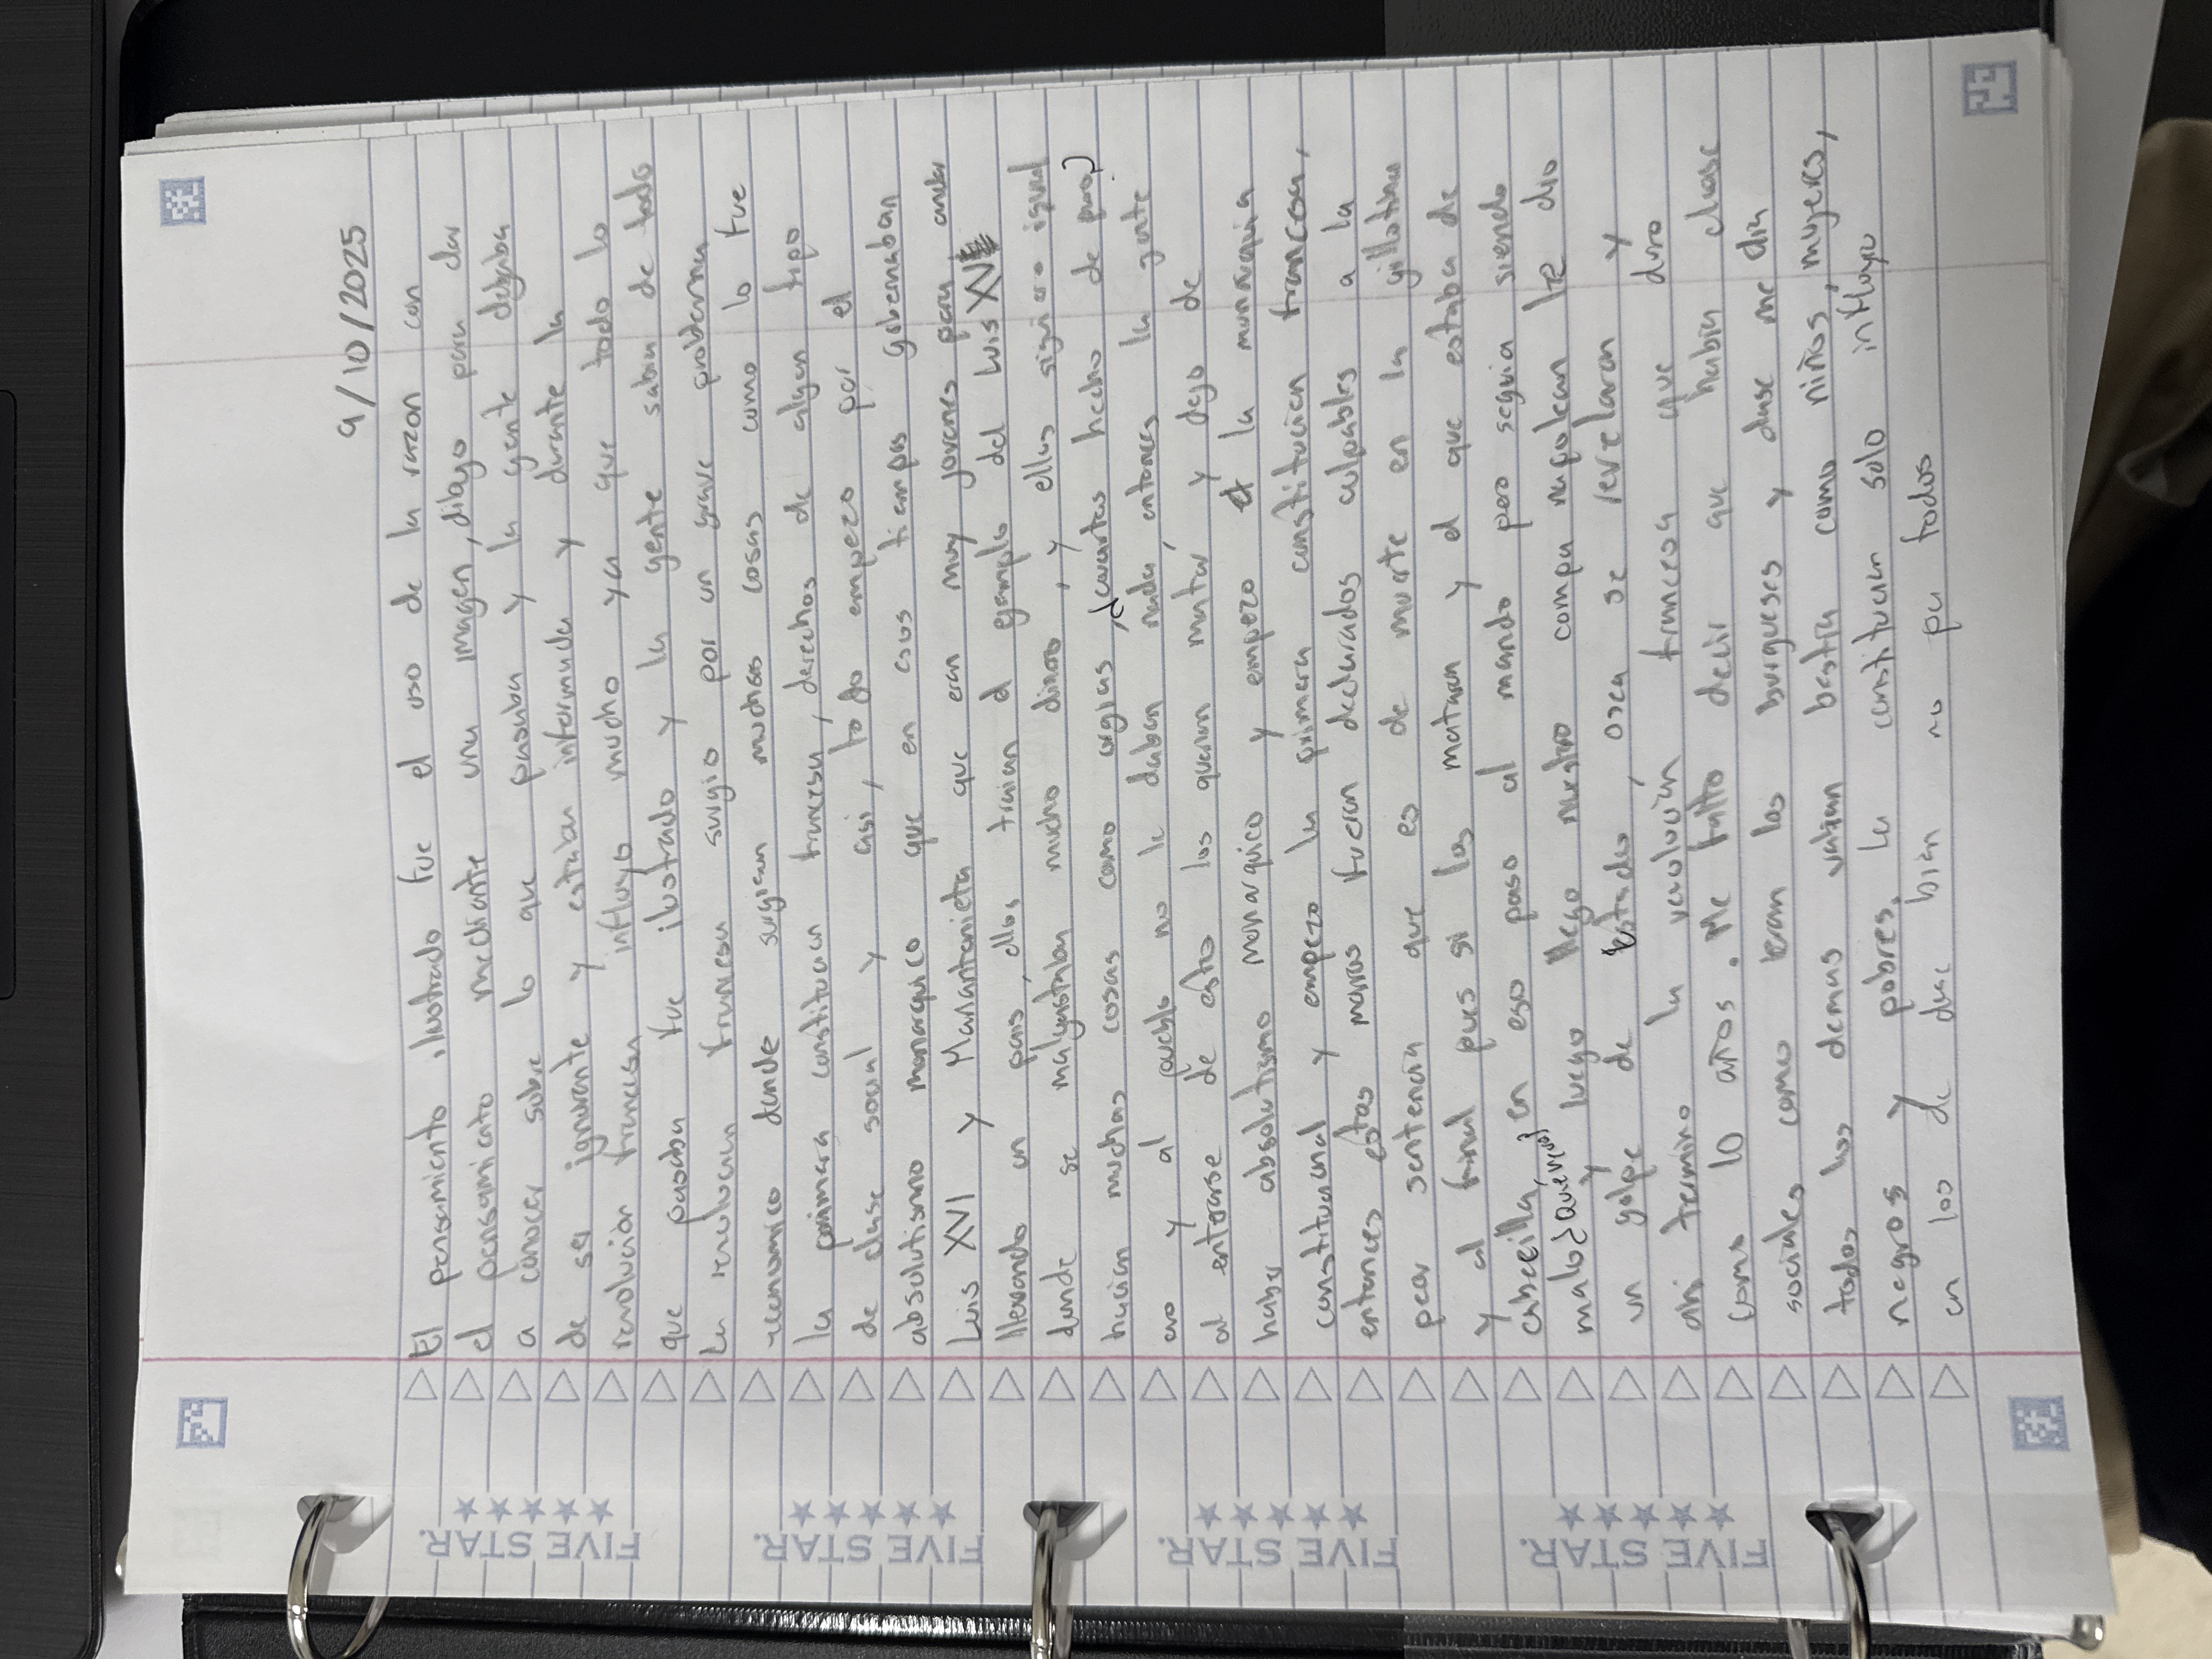 9/10/2025
El pensamiento ilustrado fue el uso de la razon con
el pensamiento mediante una imagen, dibujo para dar
a conocer sobre lo que pasaba y la gente dejaba
de ser ignorante y estaban informada y durante la
revolución francesa influyo mucho ya que todo lo
que pasaba fue ilustrado y la gente sabia de todo
La revolucion francesa surgio por un grave problema
economico donde surgieron muchas cosas como lo fue
la primera constitucion francesa, derechos de algun tipo
de clase social y asi, todo empezo por el
absolutismo monarquico que en esos tiempos gobernaban
Luis XVI y Mariantonieta que eran muy jovenes para andar
llevando un pais, ellos traian el ejemplo del Luis XV
donde se malgastaban mucho dinero, y ellos siguiero igual
hacian muchas cosas como orgias, ¿cuartos hecho de puro?
oro y al pueblo no le daban nada, entonces la gente
al enterarse de esto los querian matar, y dejo de
haber absolutismo monarquico y empezo la monarquia
constitucional y empezo la primera constitucion francesa,
entonces estos manos fueron declarados culpables a la
peor sentencia que es de muerte en la gillotina
y al final pues si los mataron y el que estaba de
cabecilla, en eso paso al mando pero seguia siendo
malo ¿Quienes? y luego llego nuestro compa napolean le dio
un golpe de estado, osea se revelaron y
ahi termino la revolución francesa que duro
como 10 años. Me falto decir que habia clase
sociales como eran los burgueses y clase media
todos los demas valian bestia como niños, mujeres,
negros y pobres, la constitucion solo influyo
en los de clase bien no pa todos
FIVE STAR.
FIVE STAR.
FIVE STAR.
FIVE STAR.